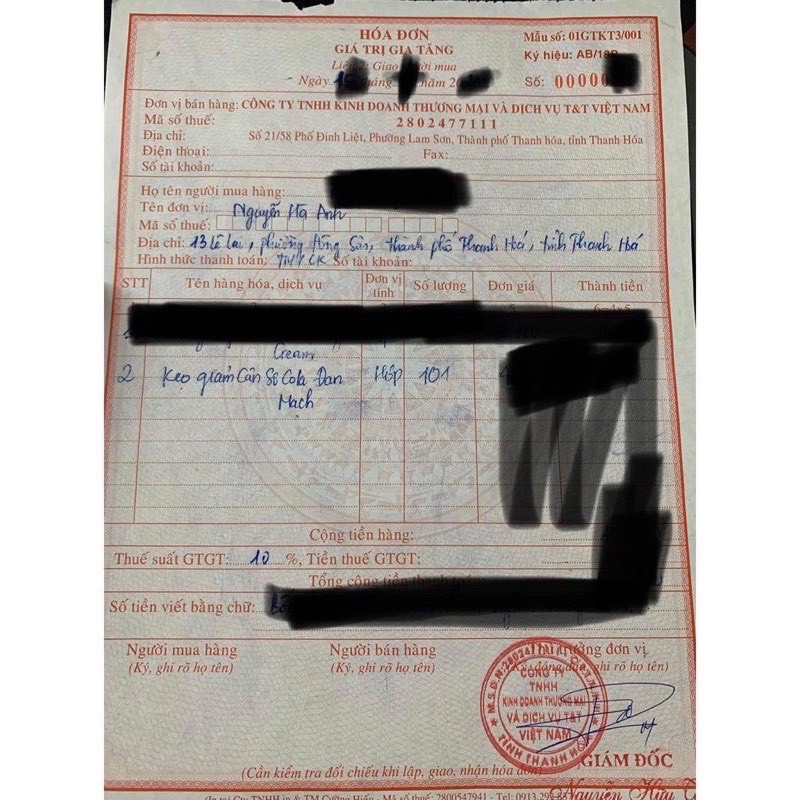 HÓA ĐƠN
GIÁ TRỊ GIA TĂNG
Mẫu số: 01GTKT3/001
Ký hiệu: AB/18P
Liên 2: Giao người mua
Ngày tháng năm 20
Số: 0000
Đơn vị bán hàng: CÔNG TY TNHH KINH DOANH THƯƠNG MẠI VÀ DỊCH VỤ T&T VIỆT NAM
Mã số thuế: 2802477111
Địa chỉ: Số 21/58 Phố Đinh Liệt, Phường Lam Sơn, Thành phố Thanh hóa, tỉnh Thanh Hóa
Điện thoại: Fax:
Số tài khoản:
Họ tên người mua hàng:
Tên đơn vị: Nguyễn Hạ Anh
Mã số thuế:
Địa chỉ: 13 Lê Lai, phường Đông Sơn, thành phố Thanh Hoá, tỉnh Thanh Hoá
Hình thức thanh toán: TM/CK Số tài khoản:
STT Tên hàng hóa, dịch vụ Đơn vị tính Số lượng Đơn giá Thành tiền
Cream
2 Kẹo giảm Cân Sô Cola Đan Mạch Hộp 101
Cộng tiền hàng:
Thuế suất GTGT: 10 %, Tiền thuế GTGT:
Tổng cộng tiền thanh toán:
Số tiền viết bằng chữ:
Người mua hàng Người bán hàng Thủ trưởng đơn vị
(Ký, ghi rõ họ tên) (Ký, ghi rõ họ tên) (Ký, đóng dấu, ghi rõ họ tên)
CÔNG TY
TNHH
KINH DOANH THƯƠNG MẠI
VÀ DỊCH VỤ T&T
VIỆT NAM
TỈNH THANH HÓA
GIÁM ĐỐC
(Cần kiểm tra đối chiếu khi lập, giao, nhận hóa đơn)
Nguyễn Hữu
(In tại Cty TNHH in & TM Cường Hiền - Mã số thuế: 2800547941 - Tel: 0913.295